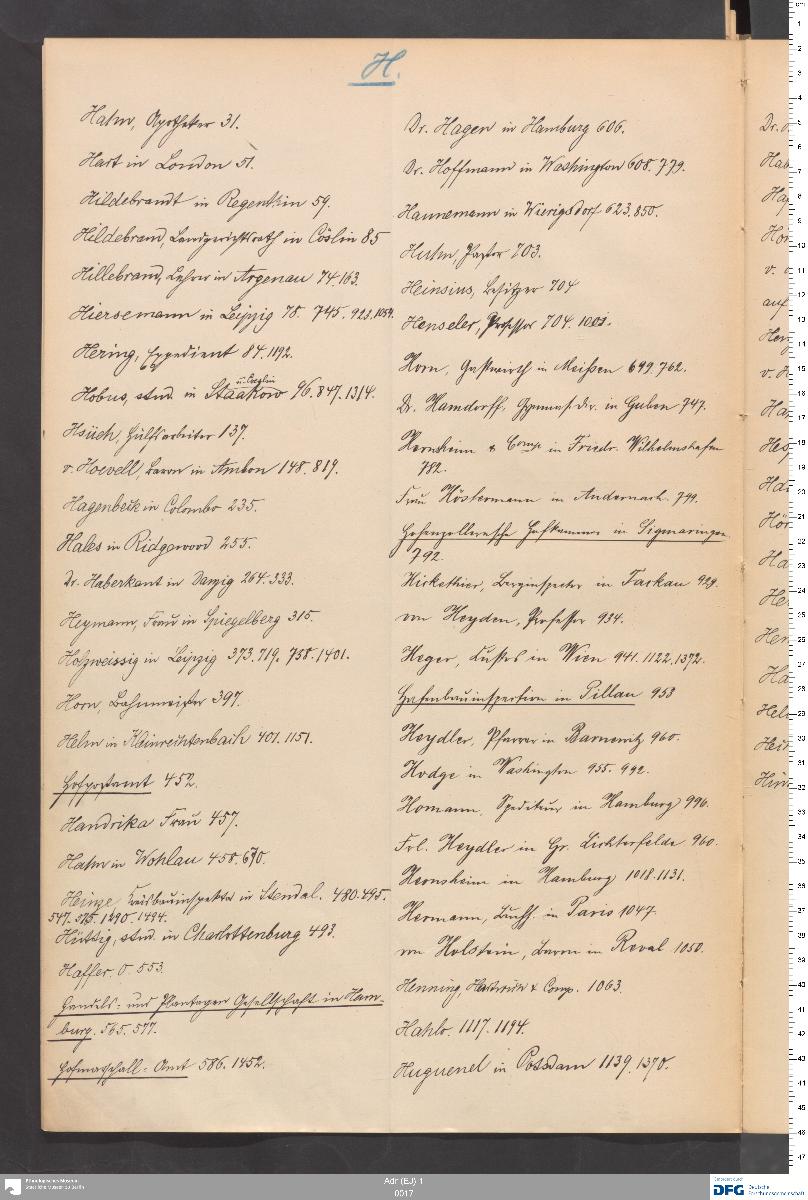 H.
Hahn, Apotheker 31.
Hart in London 51.
Hildebrandt in Regenthin 59.
Hildebrand, Landgerichtsrath in Cöslin 85
Hillebrand, Lehrer in Argenau 74. 163.
Hiersemann in Leipzig 78. 745. 923. 1054.
Hering, Expedient 84. 1192.
Hobus, stud. in Staakow 96. 847. 1314.
Hsüeh, Hülfsarbeiter 137.
v. Hoevell, Baron in Ambon 148. 819.
Hagenbeck in Colombo 235.
Hales in Ridgewood 255.
Dr. Haberkant in Danzig 264. 333.
Heymann, Frau in Spiegelberg 315.
Holzweissig in Leipzig 373. 719. 738. 1401.
Horn, Bahnmeister 397.
Helm in Kleinrechtenbach 401. 1151.
Hofpostamt 452.
Handrika Frau 457.
Hahn in Wohlau 458. 670.
Heinze, Kreisbauinspektor in Stendal. 480. 495.
547. 575. 1290. 1494.
Hüttig, stud. in Charlottenburg 493.
Haffer. O. 553.
Handels- und Plantagen Gesellschaft in Ham-
burg. 565. 577.
Hofmarschall-Amt 586. 1452.
Dr. Hagen in Hamburg 606.
Dr. Hoffmann in Washington 608. 779.
Hannemann in Wierigsdorf 623. 850.
Huhn, Pastor 703.
Heinsius, Besitzer 704
Henseler, Professor 704. 1001.
Horn, Gastwirth in Meißen 699. 762.
Dr. Hamdorff, Gymnas. dir. in Guben 747.
Hernheim & Comp in Friedr. Wilhelmshafen
782.
Frau Höstermann in Andernach. 799.
Hohenzollernsche Hofkammer in Sigmaringen
792.
Hirkethier, Berginspector in Tarkau 929.
von Heyden, Professor 934.
Heger, Kustos in Wien 941. 1122. 1372.
Hafenbauinspection in Pillau 953
Heydler, Pfarrer in Barnewitz 960.
Hodge in Washington 955. 992.
Homann, Spediteur in Hamburg 996.
Frl. Heydler in Gr. Lichterfelde 960.
Hernsheim in Hamburg 1018. 1131.
Hermann, in Paris 1047.
von Holstein, Baron in Reval 1050.
Henning, & Comp. 1063.
Hahlo. 1117. 1194.
Huguenel in Potsdam 1139. 1370.
Ethnologisches Museum
Staatliche Museen zu Berlin
Adr (EJ) 1
0017
DFG
Deutsche
Forschungsgemeinschaft